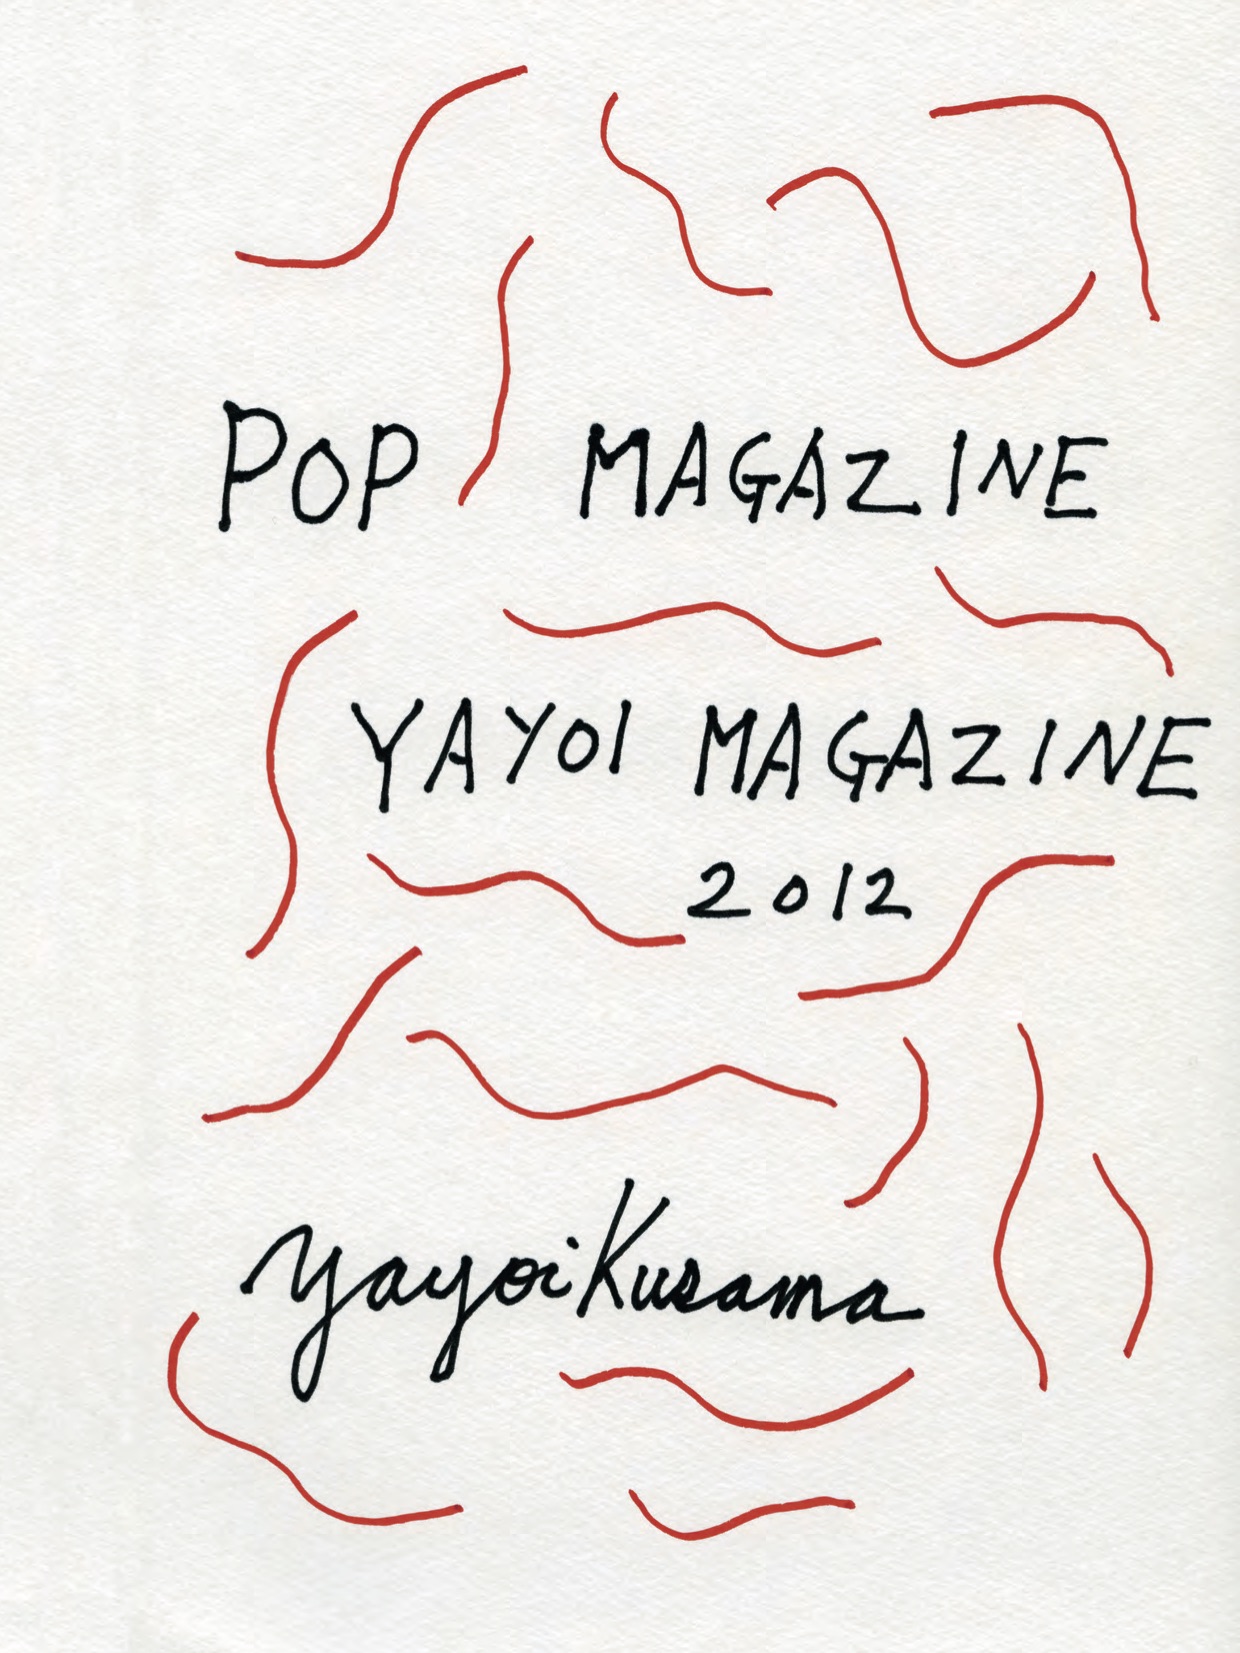 POP MAGAZINE
YAYOI MAGAZINE
2012
yayoi Kusama